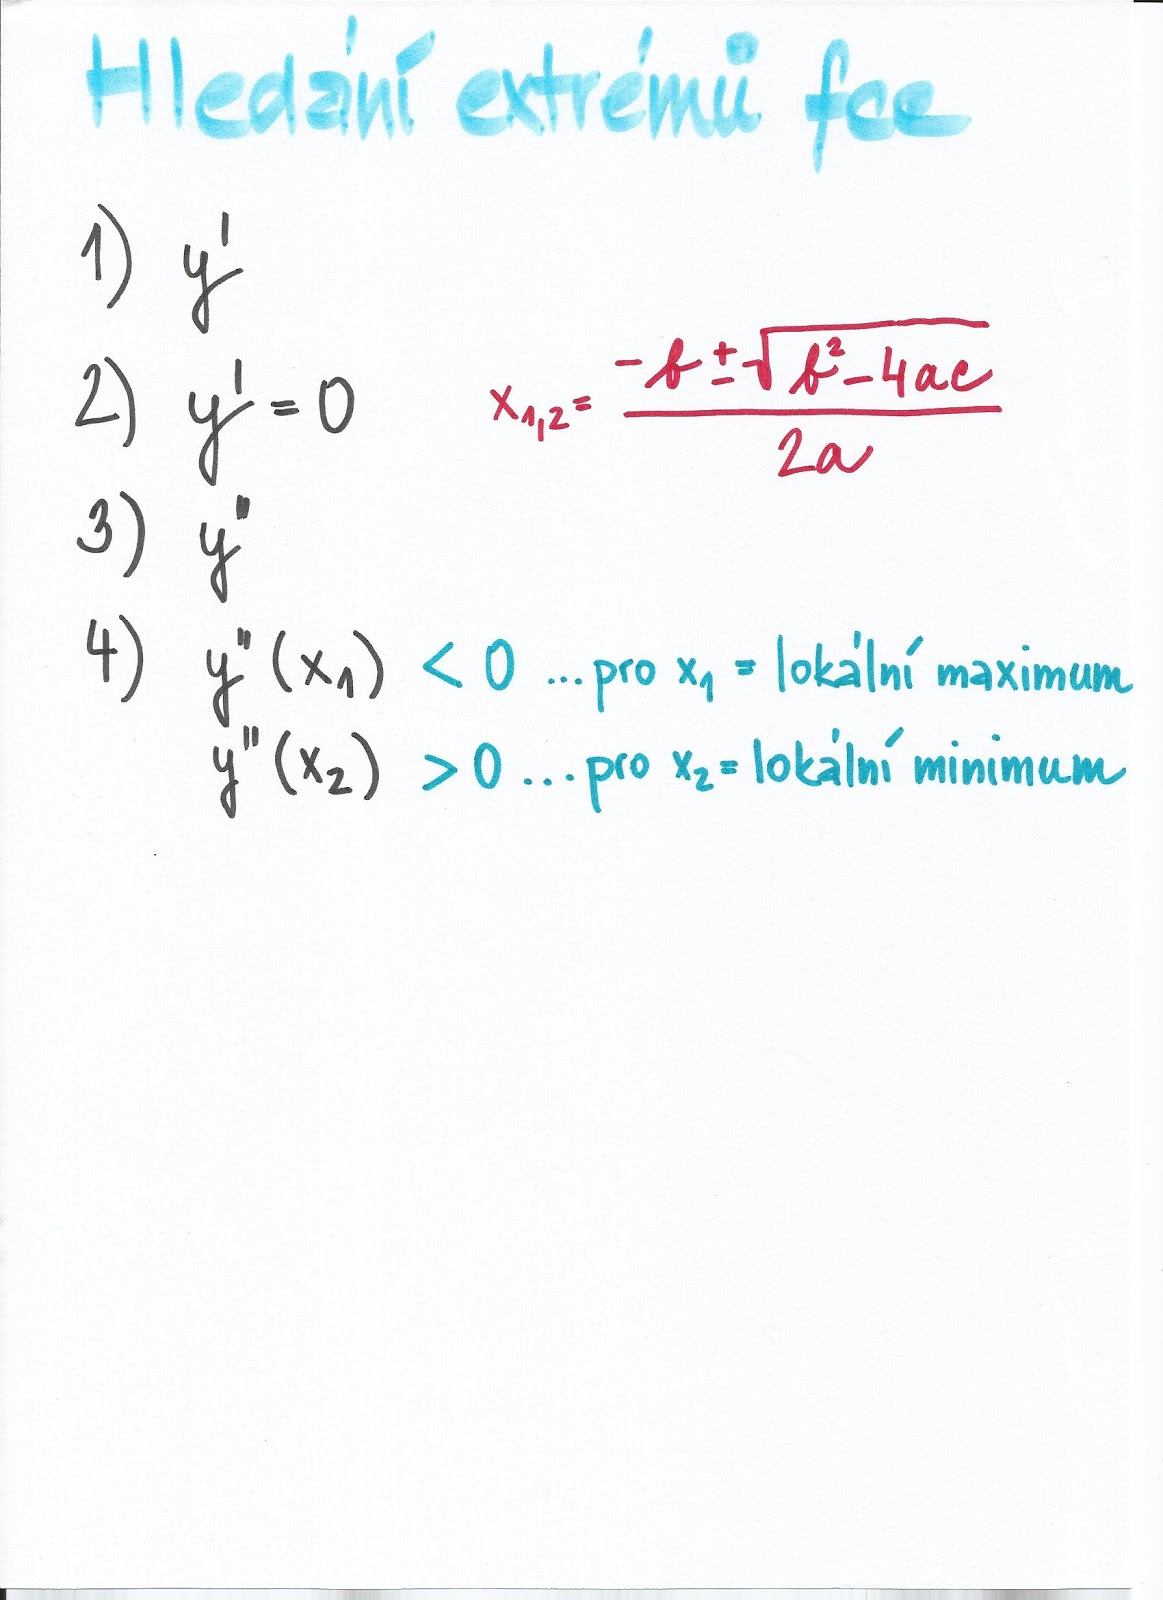 Hledání extrémů fce
1) y'
2) y' = 0
x₁,₂ = (-b ± √(b² - 4ac)) / 2a
3) y"
4) y" (x₁) < 0 ... pro x₁ = lokální maximum
y" (x₂) > 0 ... pro x₂ = lokální minimum